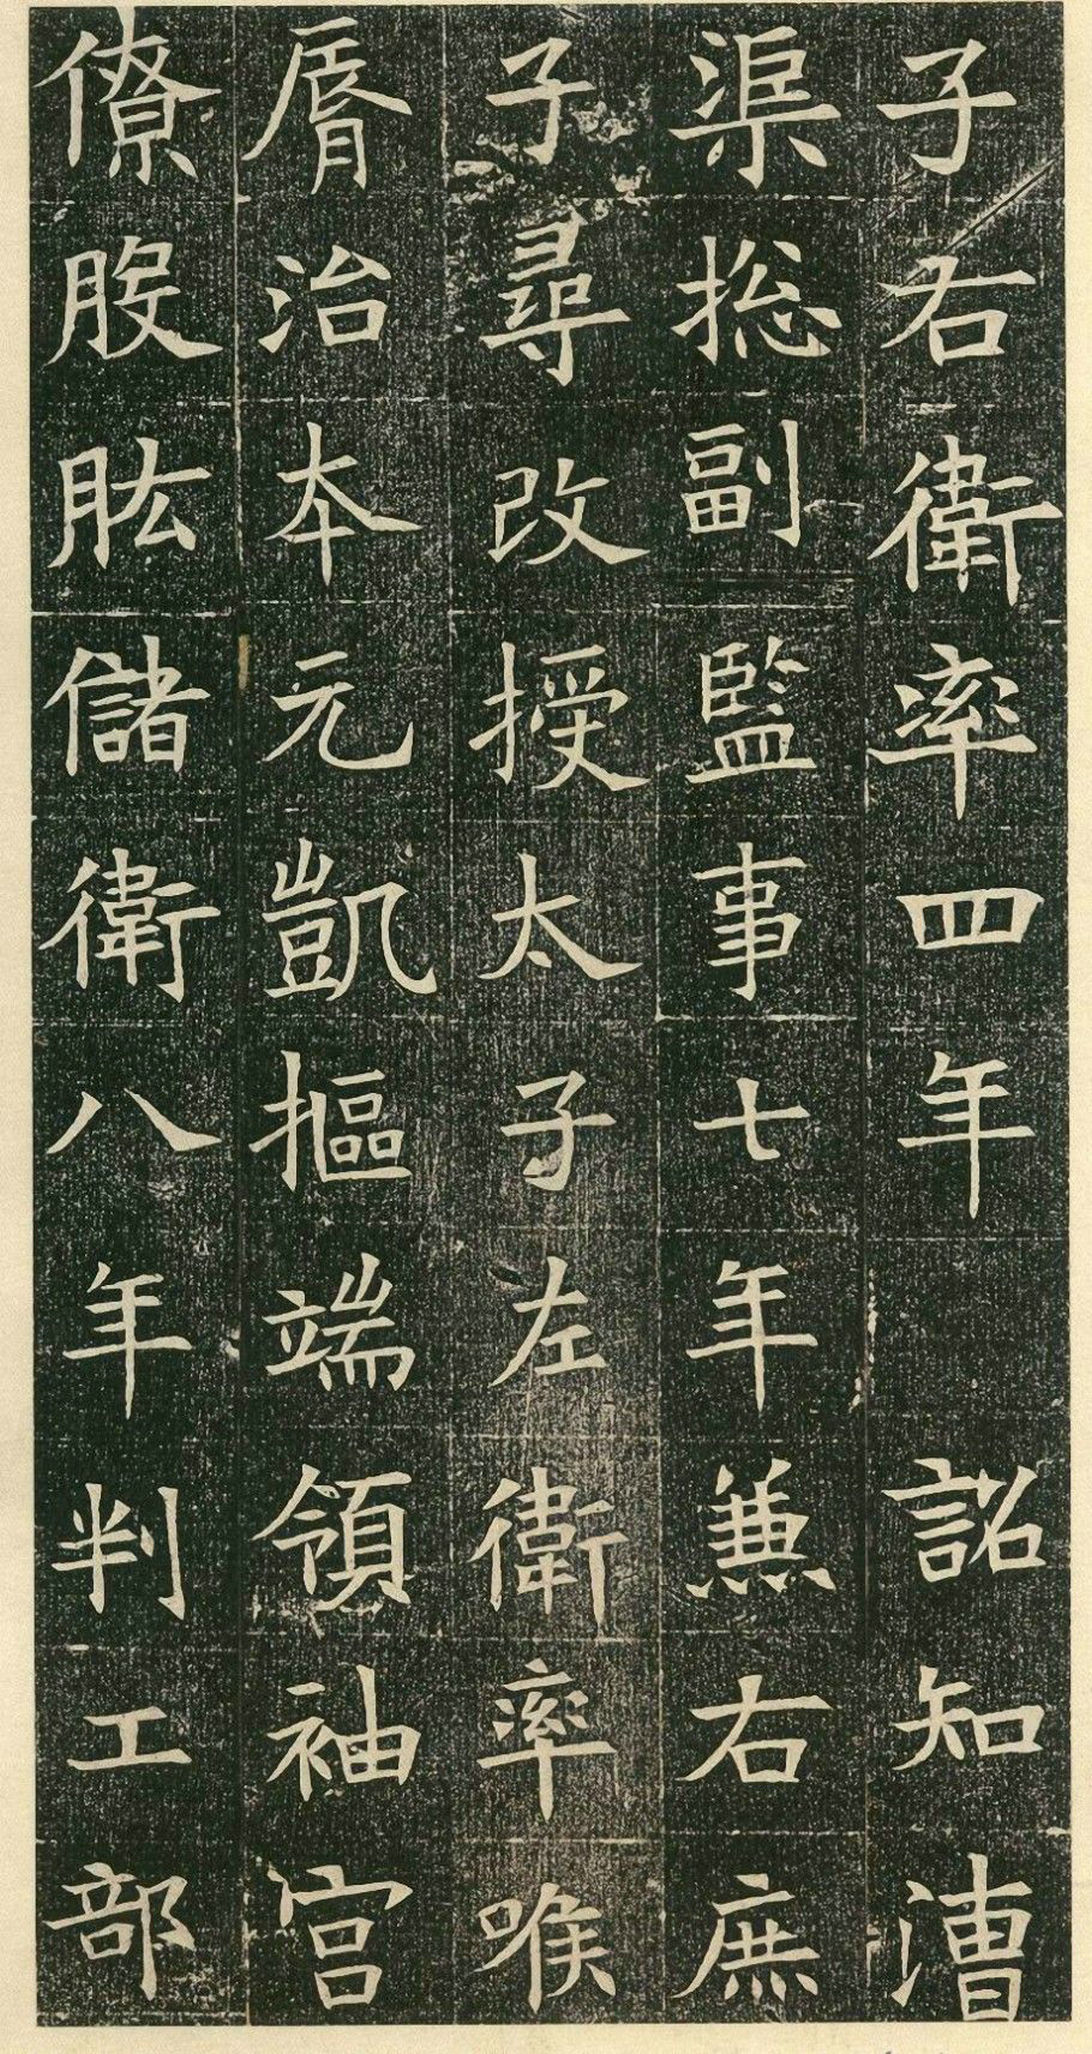 子右衛率四年詔知漕
渠揔副監事七年兼右庶
子尋改授太子左衛率喉
脣治本元凱摳端領袖宮
僚股肱儲衛八年判工部